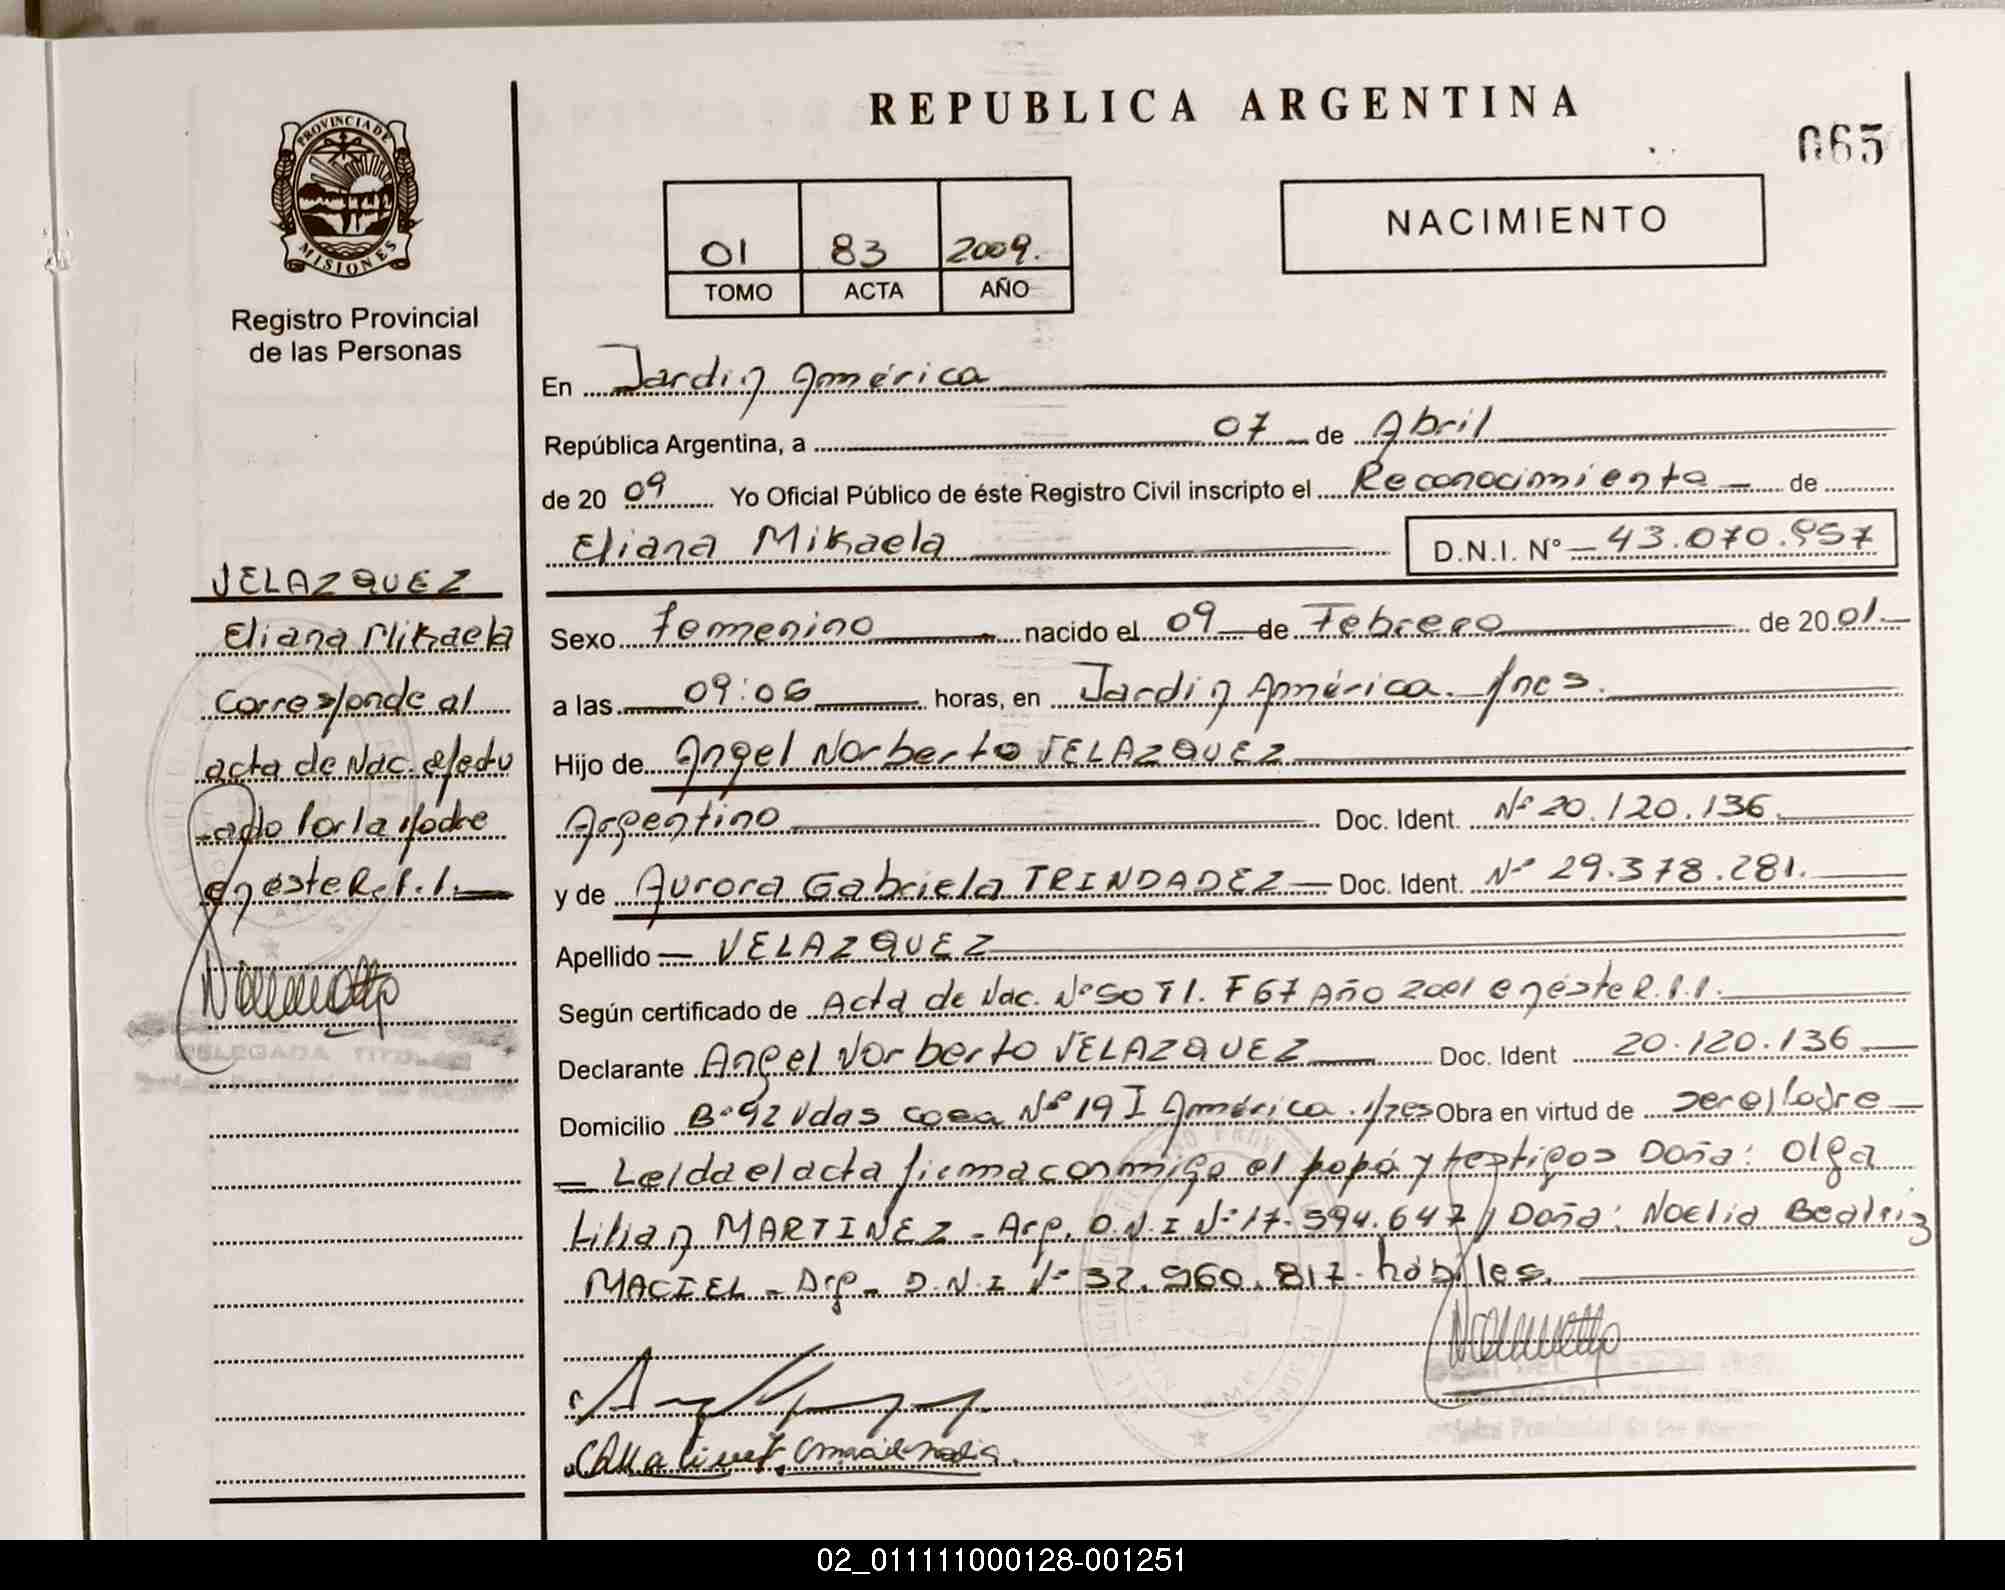 REPUBLICA ARGENTINA
065
PROVINCIA DE
MISIONES
Registro Provincial
de las Personas
01 83 2009.
TOMO ACTA AÑO
NACIMIENTO
En Jardin América
República Argentina, a 07 de Abril
de 20 09 Yo Oficial Público de éste Registro Civil inscripto el Reconocimiento de
Eliana Mikaela D.N.I. N° 43.070.957
Sexo Femenino nacido el 09 de Febrero de 20 01.
a las 09:06 horas, en Jardin América. Mnes.
Hijo de Angel Norberto VELAZQUEZ
Argentino Doc. Ident. Nº 20.120.136.
y de Aurora Gabriela TRINDADEZ Doc. Ident. Nº 29.378.281.
Apellido VELAZQUEZ
Según certificado de Acta de Nac. Nº 50 T1. F 67 Año 2001 en éste R.P.P.
Declarante Angel Norberto VELAZQUEZ Doc. Ident 20.120.136
Domicilio Bº 92 Vdas casa Nº 19 J América. Mnes Obra en virtud de ser el Padre
Leída el acta firma conmigo el papá y testigos Doña: Olga
Lilian MARTINEZ - Arg. D.N.I Nº 17.594.647 y Doña: Noelia Beatriz
MACIEL - Arg - D.N.I Nº 32.960.817. hábiles.
VELAZQUEZ
Eliana Mikaela
Corresponde al
acta de Nac. efectu
-ado por la Madre
en éste R.P.P.
DELEGADA TITULAR
DELEGADA TITULAR
02_011111000128-001251